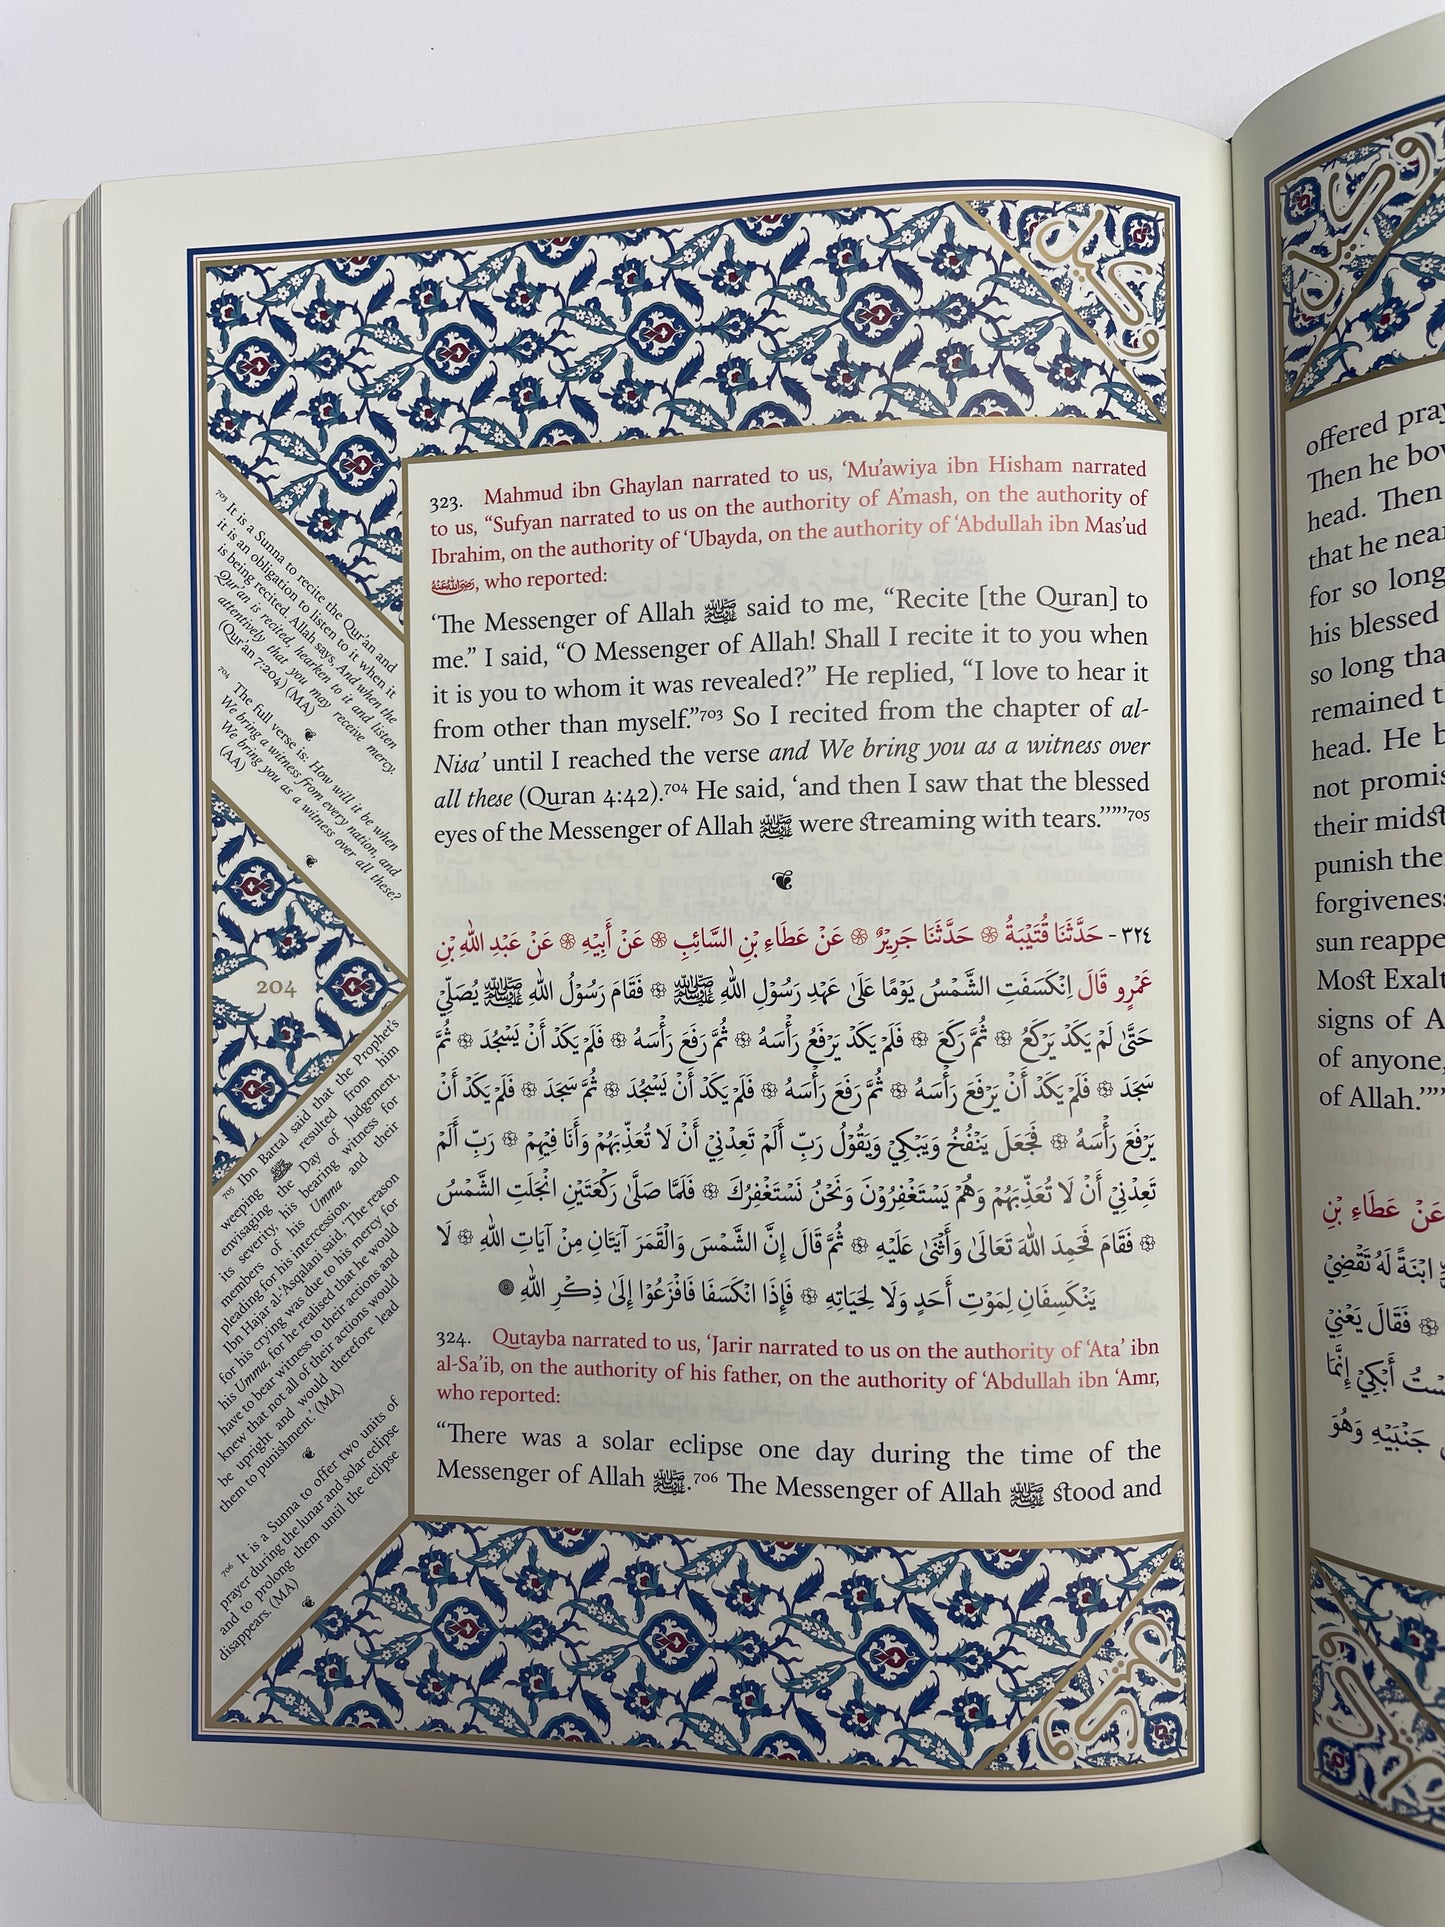 323. Mahmud ibn Ghaylan narrated to us, ‘Mu‘awiya ibn Hisham narrated
to us, “Sufyan narrated to us on the authority of A‘mash, on the authority of
Ibrahim, on the authority of ‘Ubayda, on the authority of ‘Abdullah ibn Mas‘ud
رضي الله عنه, who reported:
‘The Messenger of Allah ﷺ said to me, “Recite [the Quran] to
me.” I said, “O Messenger of Allah! Shall I recite it to you when
it is you to whom it was revealed?” He replied, “I love to hear it
from other than myself.”703 So I recited from the chapter of al-
Nisa’ until I reached the verse and We bring you as a witness over
all these (Quran 4:42).704 He said, ‘and then I saw that the blessed
eyes of the Messenger of Allah ﷺ were streaming with tears.’”’”705
٣٢٤ - حَدَّثَنَا قُتَيْبَةُ ۞ حَدَّثَنَا جَرِيْرٌ ۞ عَنْ عَطَاءِ بْنِ السَّائِبِ ۞ عَنْ أَبِيْهِ ۞ عَنْ عَبْدِ اللهِ بْنِ
عَمْرٍو قَالَ اِنْكَسَفَتِ الشَّمْسُ يَوْمًا عَلَىٰ عَهْدِ رَسُوْلِ اللهِ ﷺ ۞ فَقَامَ رَسُوْلُ اللهِ ﷺ يُصَلِّيْ
حَتَّىٰ لَمْ يَكَدْ يَرْكَعُ ۞ ثُمَّ رَكَعَ ۞ فَلَمْ يَكَدْ يَرْفَعُ رَأْسَهُ ۞ ثُمَّ رَفَعَ رَأْسَهُ ۞ فَلَمْ يَكَدْ أَنْ يَسْجُدَ ۞ ثُمَّ
سَجَدَ ۞ فَلَمْ يَكَدْ أَنْ يَرْفَعَ رَأْسَهُ ۞ ثُمَّ رَفَعَ رَأْسَهُ ۞ فَلَمْ يَكَدْ أَنْ يَسْجُدَ ۞ ثُمَّ سَجَدَ ۞ فَلَمْ يَكَدْ أَنْ
يَرْفَعَ رَأْسَهُ ۞ فَجَعَلَ يَنْفُخُ وَيَبْكِيْ وَيَقُوْلُ رَبِّ أَلَمْ تَعِدْنِيْ أَنْ لَا تُعَذِّبَهُمْ وَأَنَا فِيْهِمْ ۞ رَبِّ أَلَمْ
تَعِدْنِيْ أَنْ لَا تُعَذِّبَهُمْ وَهُمْ يَسْتَغْفِرُوْنَ وَنَحْنُ نَسْتَغْفِرُكَ ۞ فَلَمَّا صَلَّىٰ رَكْعَتَيْنِ انْجَلَتِ الشَّمْسُ
۞ فَقَامَ فَحَمِدَ اللهَ تَعَالَىٰ وَأَثْنَىٰ عَلَيْهِ ۞ ثُمَّ قَالَ إِنَّ الشَّمْسَ وَالْقَمَرَ آيَتَانِ مِنْ آيَاتِ اللهِ ۞ لَا
يَنْكَسِفَانِ لِمَوْتِ أَحَدٍ وَلَا لِحَيَاتِهِ ۞ فَإِذَا انْكَسَفَا فَافْزَعُوْا إِلَىٰ ذِكْرِ اللهِ
324. Qutayba narrated to us, ‘Jarir narrated to us on the authority of ‘Ata’ ibn
al-Sa’ib, on the authority of his father, on the authority of ‘Abdullah ibn ‘Amr,
who reported:
“There was a solar eclipse one day during the time of the
Messenger of Allah ﷺ.706 The Messenger of Allah ﷺ stood and
703 It is a Sunna to recite the Qur’an and
it is an obligation to listen to it when it
is being recited. Allah says, And when the
Qur’an is recited, hearken to it and listen
attentively that you may receive mercy.
(Qur’an 7:204) (MA)
704 The full verse is: How will it be when
We bring a witness from every nation, and
We bring you as a witness over all these?
(AA)
204
705 Ibn Battal said that the Prophet’s
weeping ﷺ resulted from him
envisaging the Day of Judgement,
its severity, his bearing witness for
members of his Umma and their
pleading for his intercession.
Ibn Hajar al-‘Asqalani said, ‘The reason
for his crying was due to his mercy for
his Umma, for he realised that he would
have to bear witness to their actions and
knew that not all of their actions would
be upright and would therefore lead
them to punishment.’ (MA)
706 It is a Sunna to offer two units of
prayer during the lunar and solar eclipse
and to prolong them until the eclipse
disappears. (MA)
وكيل
وكيل
offered
Then he
head. Then
that he
for so long
his blessed
so long
remained
head. He
not
their midst
punish
forgiveness
sun
Most
signs of
of anyone,
of Allah.’”
عَنْ عَطَاءِ بْنِ
ابْنَةً لَهُ تَقْضِيْ
۞ فَقَالَ يَعْنِيْ
أَبْكِيْ إِنَّمَا
جَنْبَيْهِ وَهُوَ